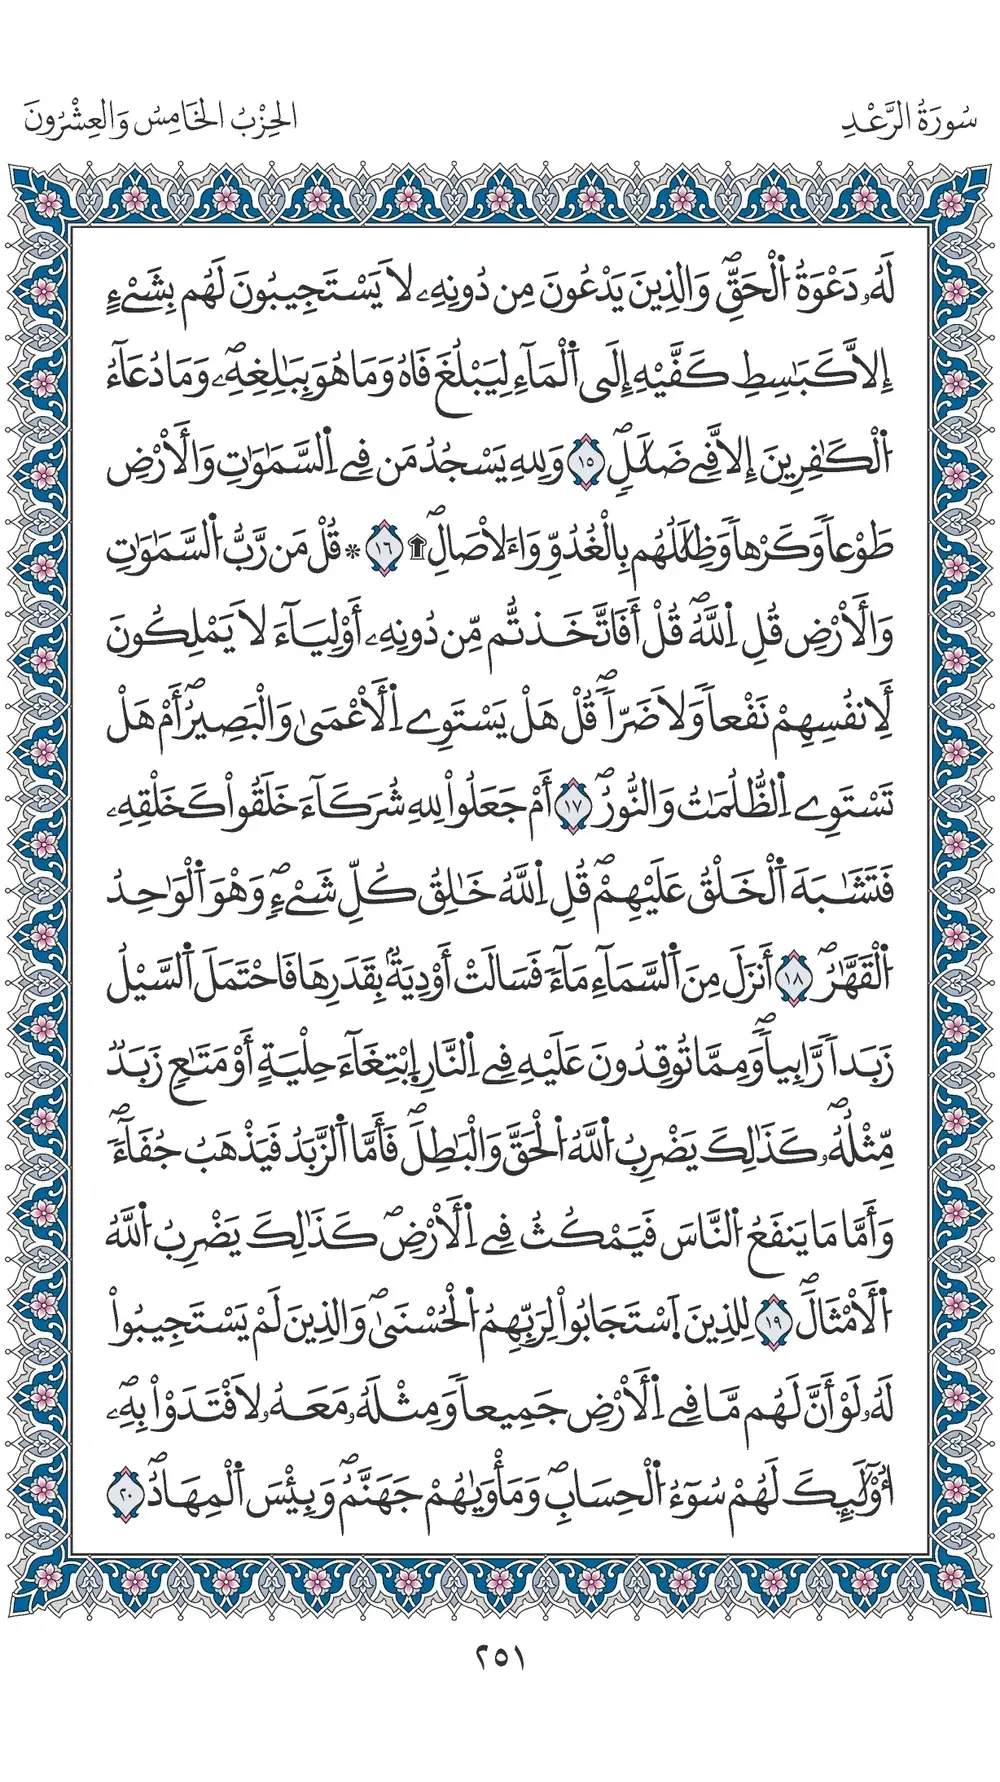 سُورَةُ الرَّعْدِ
الحِزْبُ الخَامِسُ وَالعِشْرُونَ
لَهُۥ دَعْوَةُ اُ۬لْحَقِّۖ وَالذِينَ يَدْعُونَ مِن دُونِهِۦ لَا يَسْتَجِيبُونَ لَهُم بِشَےْءٍ
اِلَّا كَبَٰسِطِ كَفَّيْهِ إِلَى اَ۬لْمَآءِ لِيَبْلُغَ فَاهُ وَمَا هُوَ بِبَٰلِغِهِۦۖ وَمَا دُعَآءُ
اُ۬لْكَٰفِرِينَ إِلَّا فِے ضَلَٰلٖۖ ١٥ وَلِلهِ يَسْجُدُ مَن فِے اِ۬لسَّمَٰوَٰتِ وَالَارْضِ
طَوْعاٗ وَكَرْهاٗ وَظِلَٰلُهُم بِالْغُدُوِّ وَالَاصَالِۖ ۩ ١٦ * قُلْ مَن رَّبُّ اُ۬لسَّمَٰوَٰتِ
وَالَارْضِ قُلِ اِ۬للَّهُۖ قُلْ أَفَاتَّخَذتُّم مِّن دُونِهِۦٓ أَوْلِيَآءَ لَا يَمْلِكُونَ
لِأَنفُسِهِمْ نَفْعاٗ وَلَا ضَرّاٗۖ قُلْ هَلْ يَسْتَوِے اِ۬لَاعْمَىٰ وَالْبَصِيرُۖ أَمْ هَلْ
تَسْتَوِے اِ۬لظُّلُمَٰتُ وَالنُّورُۖ ١٧ أَمْ جَعَلُواْ لِلهِ شُرَكَآءَ خَلَقُواْ كَخَلْقِهِۦ
فَتَشَٰبَهَ اَ۬لْخَلْقُ عَلَيْهِمْۖ قُلِ اِ۬للَّهُ خَٰلِقُ كُلِّ شَےْءٖۖ وَهْوَ اَ۬لْوَٰحِدُ
اُ۬لْقَهَّٰرُۖ ١٨ أَنزَلَ مِنَ اَ۬لسَّمَآءِ مَآءٗ فَسَالَتَ اَوْدِيَةُۢ بِقَدَرِهَا فَاحْتَمَلَ اَ۬لسَّيْلُ
زَبَداٗ رَّابِياٗۖ وَمِمَّا تُوقِدُونَ عَلَيْهِ فِے اِ۬لنَّارِ اِ۪بْتِغَآءَ حِلْيَةٍ أَوْ مَتَٰعٖ زَبَدٞ
مِّثْلُهُۥۖ كَذَٰلِكَ يَضْرِبُ اُ۬للَّهُ اُ۬لْحَقَّ وَالْبَٰطِلَۖ فَأَمَّا اَ۬لزَّبَدُ فَيَذْهَبُ جُفَآءٗۖ
وَأَمَّا مَا يَنفَعُ اُ۬لنَّاسَ فَيَمْكُثُ فِے اِ۬لَارْضِۖ كَذَٰلِكَ يَضْرِبُ اُ۬للَّهُ
اُ۬لَامْثَالَۖ ١٩ لِلذِينَ اَ۪سْتَجَابُواْ لِرَبِّهِمُ اُ۬لْحُسْنَىٰۖ وَالذِينَ لَمْ يَسْتَجِيبُواْ
لَهُۥ لَوَ اَنَّ لَهُم مَّا فِے اِ۬لَارْضِ جَمِيعاٗ وَمِثْلَهُۥ مَعَهُۥ لَافْتَدَوْاْ بِهِۦٓۖ
أُوْلَٰٓئِكَ لَهُمْ سُوٓءُ اُ۬لْحِسَابِۖ وَمَأْوَىٰهُمْ جَهَنَّمُۖ وَبِئْسَ اَ۬لْمِهَادُۖ ٢٠
٢٥١